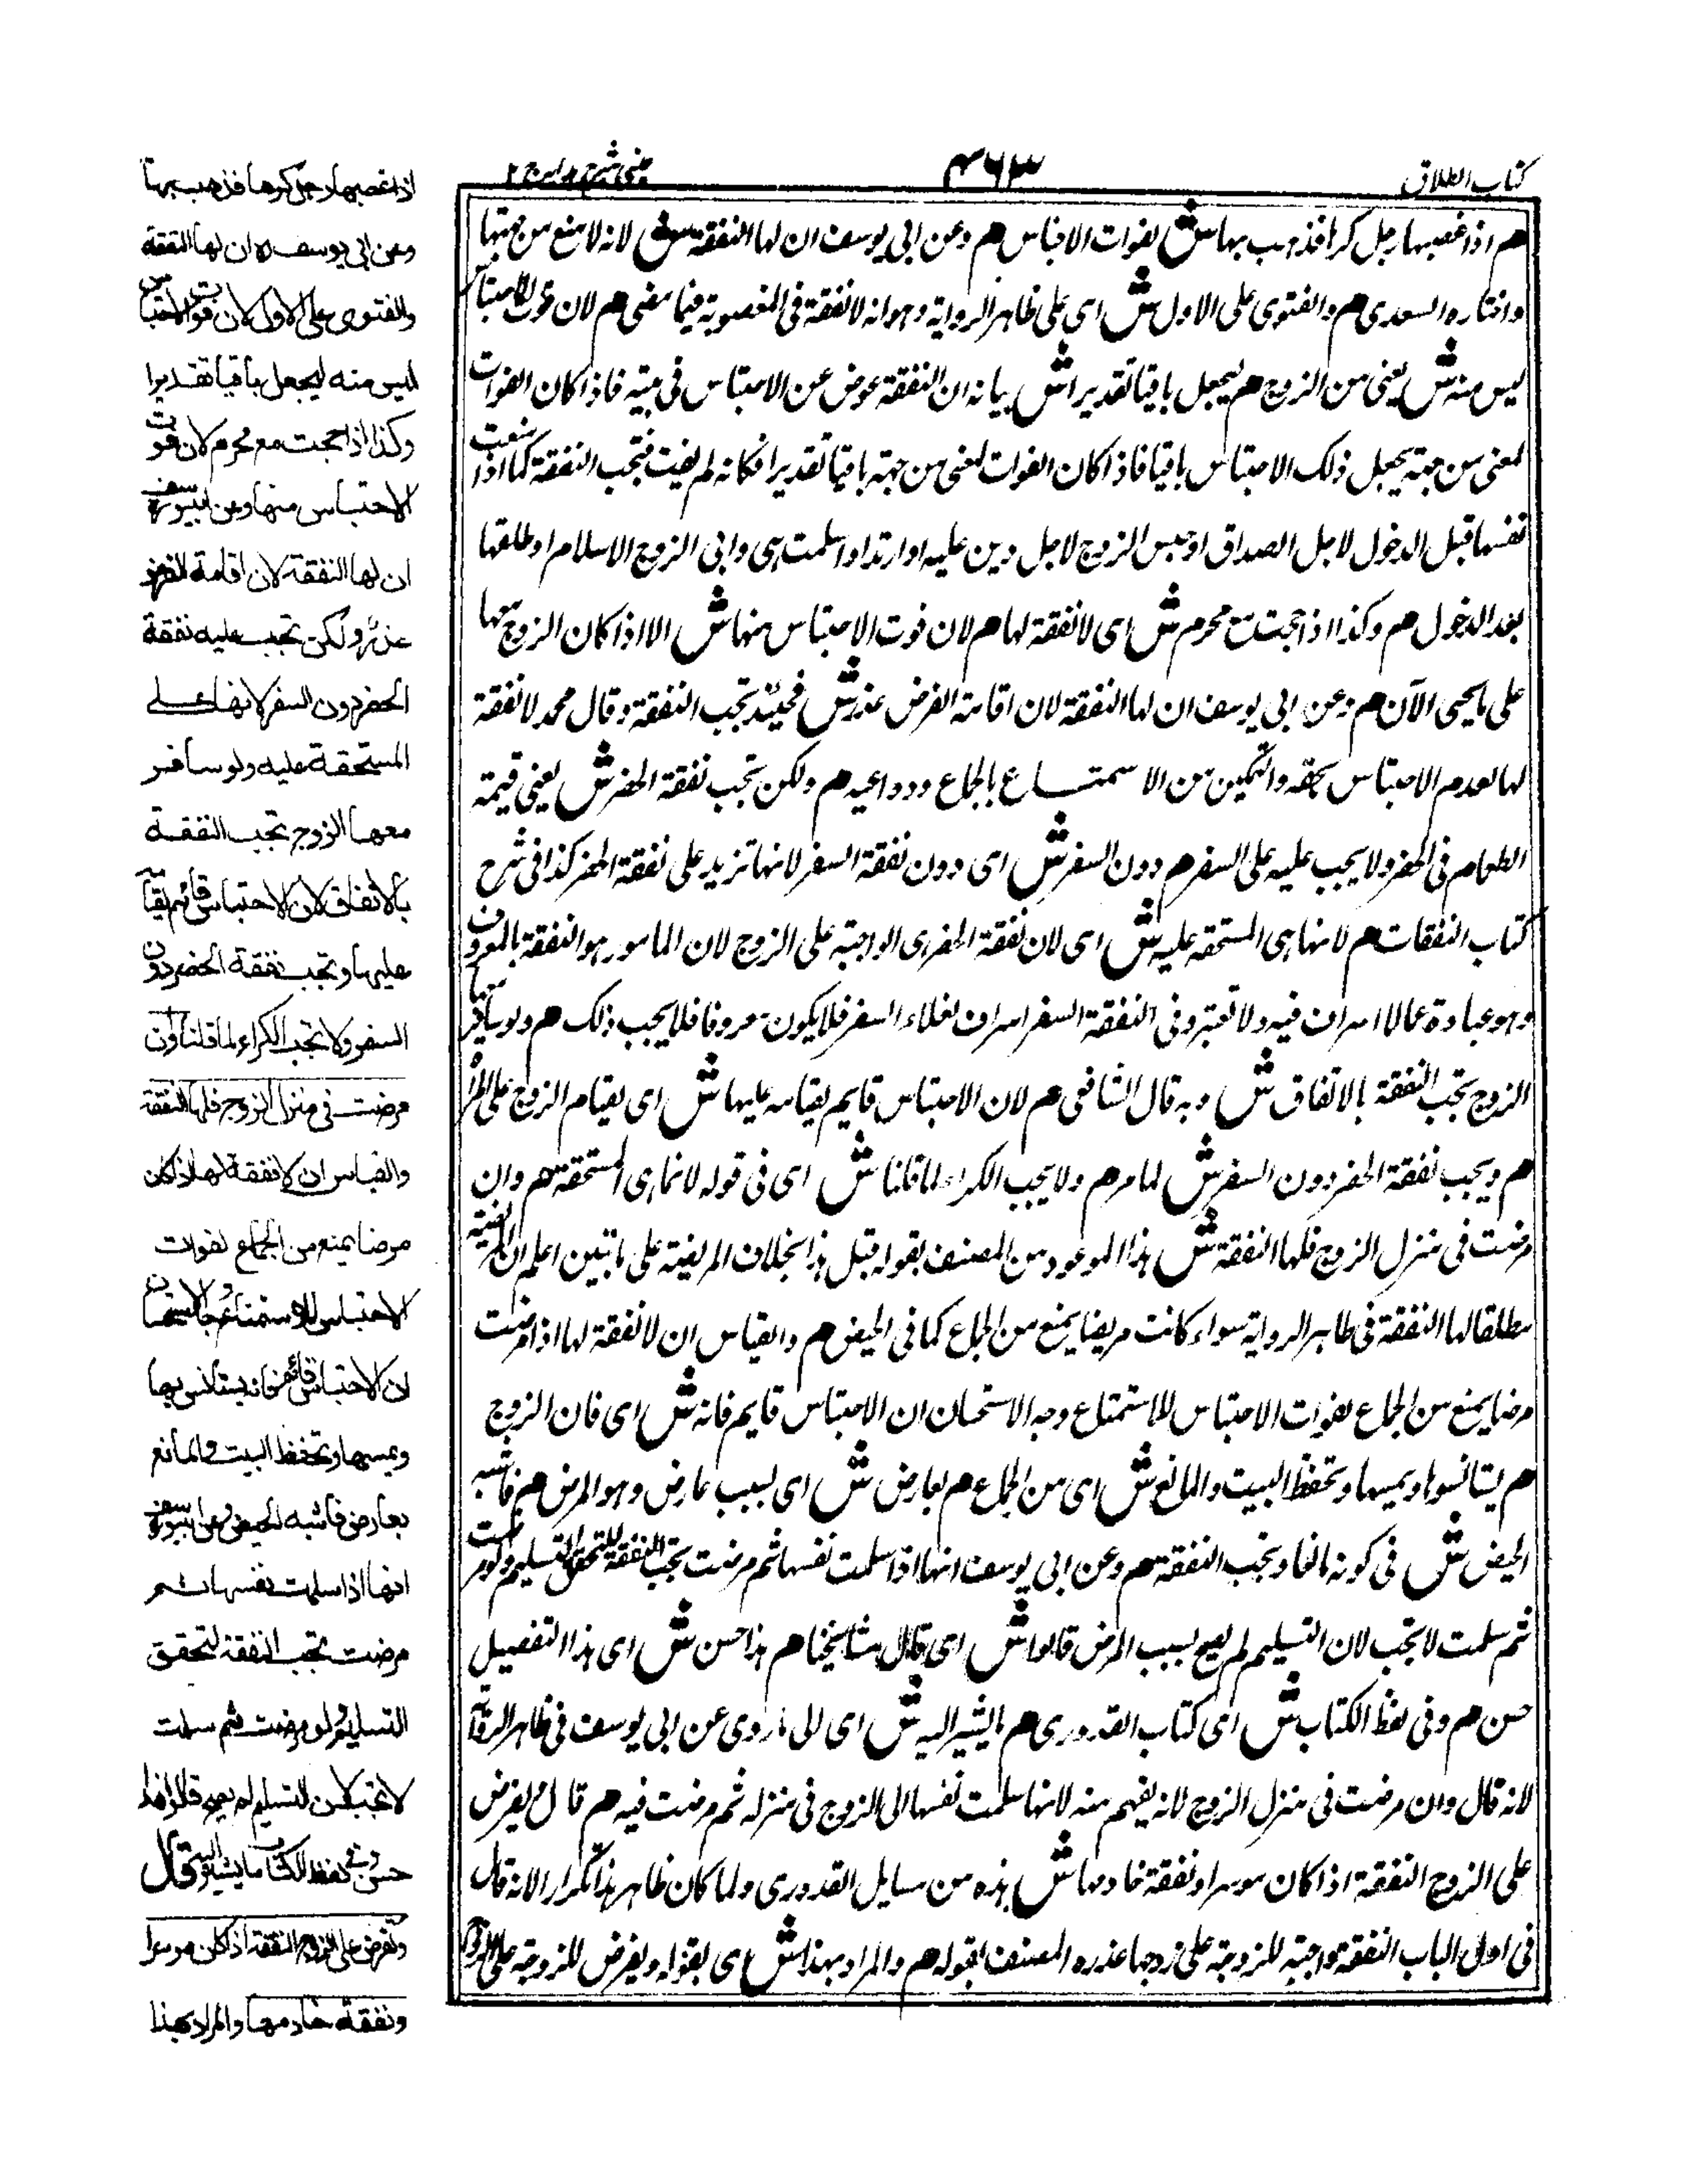 كتاب الطلاق
٤٦٣
عينى شرح هدايه ج ٢
هم اذا غصبها رجل كرها فذهب بها ش لفوات الاحتباس هم وعن ابي يوسف ان لها النفقة ش لانه لا منع من جهتها
واختاره السعدى هم والفتوى على الاول ش اى على ظاهر الرواية وهو انه لا نفقة فى المغصوبة فيما مضى هم لان فوت الاحتباس
ليس منه ش يعنى من الزوج هم ليجعل باقيا تقديرا ش بيانه ان النفقة عوض عن الاحتباس فى بيته فاذا كان الفوات
لمعنى من جهته يجعل ذلك الاحتباس باقيا فاذا كان الفوات لمعنى من جهته باقيا تقديرا فكانه لم يفت فتجب النفقة كما اذا منعت
نفسها قبل الدخول لاجل الصداق او حبس الزوج لاجل دين عليه او ارتد او اسلمت هى وابى الزوج الاسلام او طلقها
بعد الدخول هم وكذا اذا حجت مع محرم ش اى لا نفقة لها هم لان فوت الاحتباس منها ش الا اذا كان الزوج معها
على ما يجى الآن هم وعن ابى يوسف ان لها النفقة لان اقامة الفرض عذر ش فحينئذ تجب النفقة وقال محمد لا نفقة
لها لعدم الاحتباس بحقه والتمكين من الاستمتاع بالجماع ودواعيه هم ولكن تجب نفقة الحضر ش يعنى قيمة
الطعام فى الحضر ولا يجب عليه على السفر هم دون السفر ش اى دون نفقة السفر لانها تزيد على نفقة الحضر كذا فى شرح
كتاب النفقات هم لانها هى المستحقه عليه ش اى لان نفقة الحضر هى الواجبة على الزوج لان المامور هو النفقة بالمعروف
وهو عبارة عما لا اسراف فيه ولا تقتير وفى النفقة السفر اسراف لغلاء السفر فلا يكون معروفا فلا يجب ذلك هم ولو سافر معها
الزوج تجب النفقة بالاتفاق ش وبه قال الشافعى هم لان الاحتباس قايم بقيامه عليها ش اى بقيام الزوج على المرأة
هم ويجب نفقة الحضر دون السفر ش لما مر هم ولا يجب الكراء لما قلنا ش اى فى قوله لانها هى المستحقة هم وان
مرضت فى منزل الزوج فلها النفقة ش هذا الموعود من المصنف بقوله قبل هذا بخلاف المريضة على ما تبين اعلم ان المريضة
مطلقا لها النفقة فى ظاهر الرواية سواء كانت مريضا يمنع من الجماع كما فى الحيض هم والقياس ان لا نفقة لها اذا مرضت
مرضا يمنع من الجماع لفوات الاحتباس للاستمتاع وجه الاستحسان ان الاحتباس قايم فانه ش اى فان الزوج
هم يستانسوا ويمسها وتحفظ البيت والمانع ش اى من الجماع هم بعارض ش اى بسبب عارض وهو المرض هم فاشبه
الحيض ش فى كونه مانعا وتجب النفقة هم وعن ابى يوسف انها اذا سلمت نفسها ثم مرضت تجب النفقة للتحقق التسليم ولو مرضت
ثم سلمت لا تجب لان التسليم لم يصح بسبب المرض قالوا ش اى قال مشايخنا هم هذا حسن ش اى هذا التفصيل
حسن هم وفى لفظ الكتاب ش اى كتاب القدورى هم ما يشير اليه ش اى الى ما روى عن ابى يوسف فى ظاهر الرواية
لانه قال وان مرضت فى منزل الزوج لانه يفهم منه لانها سلمت نفسها الى الزوج فى منزله ثم مرضت فيه هم قال يفرض
على الزوج النفقة اذا كان موسرا ونفقة خادمها ش هذه من مسايل القدورى ولما كان ظاهر هذا تكرار الانه قال
فى اول الباب النفقة واجبة للزوجة على زوجها عذره المصنف بقوله هم والمراد بهذا ش اى بقوله ويفرض للزوجة على الزوج
اذا غصبها رجل كرها فذهب بها
وعن ابي يوسف ره ان لها النفقة
والفتوى على الاول لان فوات الاحتباس
ليس منه ليجعل باقيا تقديرا
وكذا اذا حجت مع محرم لان فوت
الاحتباس منها وعن ابي يوسف ره
ان لها النفقة لان اقامة الفرض
عذر ولكن تجب عليه نفقة
الحضر دون السفر لانها هى
المستحقة عليه ولو سافر
معها الزوج تجب النفقة
بالاتفاق لان الاحتباس قائم بقيامه
عليها وتجب نفقة الحضر دون
السفر ولا تجب الكراء لما قلنا وان
مرضت في منزل الزوج فلها النفقة
والقياس ان لا نفقة لها اذا كان
مرضا يمنع من الجماع لفوات
الاحتباس للاستمتاع وجه الاستحسان
ان الاحتباس قائم فانه يستأنس بها
ويمسها وتحفظ البيت والمانع
بعارض فاشبه الحيض وعن ابي يوسف ره
انها اذا سلمت نفسها ثم
مرضت تجب النفقة لتحقق
التسليم ولو مرضت ثم سلمت
لا تجب لان التسليم لم يصح قالوا هذا
حسن وفي لفظ الكتاب ما يشير اليه قال
وتفرض على الزوج النفقة اذا كان موسرا
ونفقة خادمها والمراد بهذا